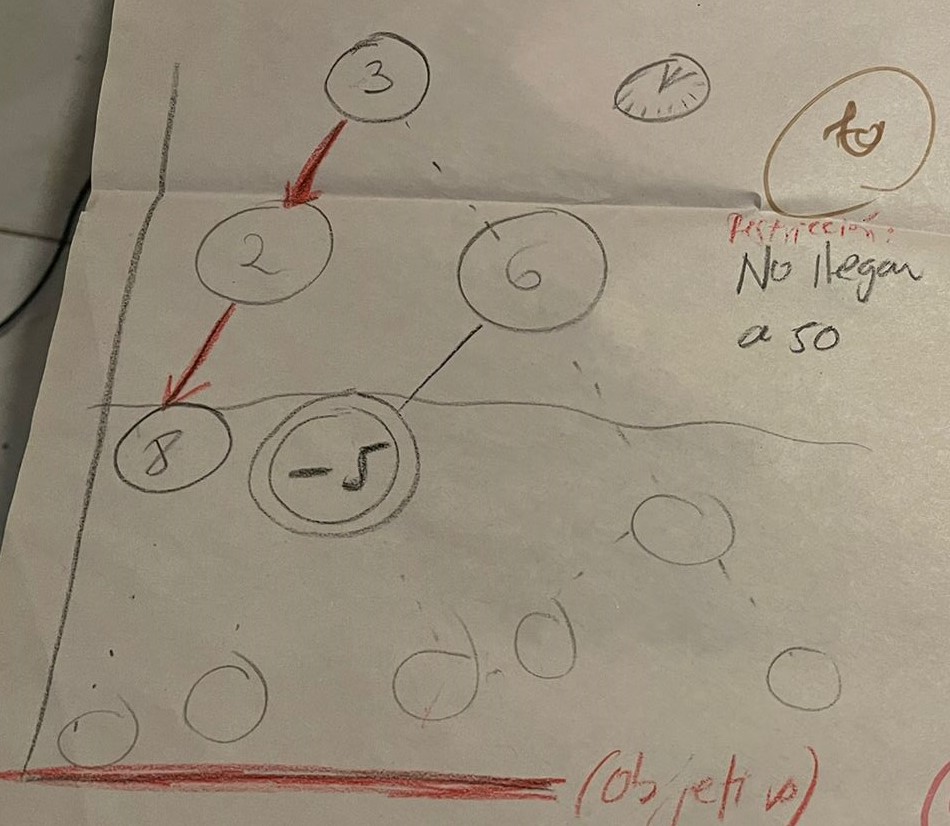 3
to
2
6
Restricción:
No llegar
a 50
8
-5
(Objetivo)